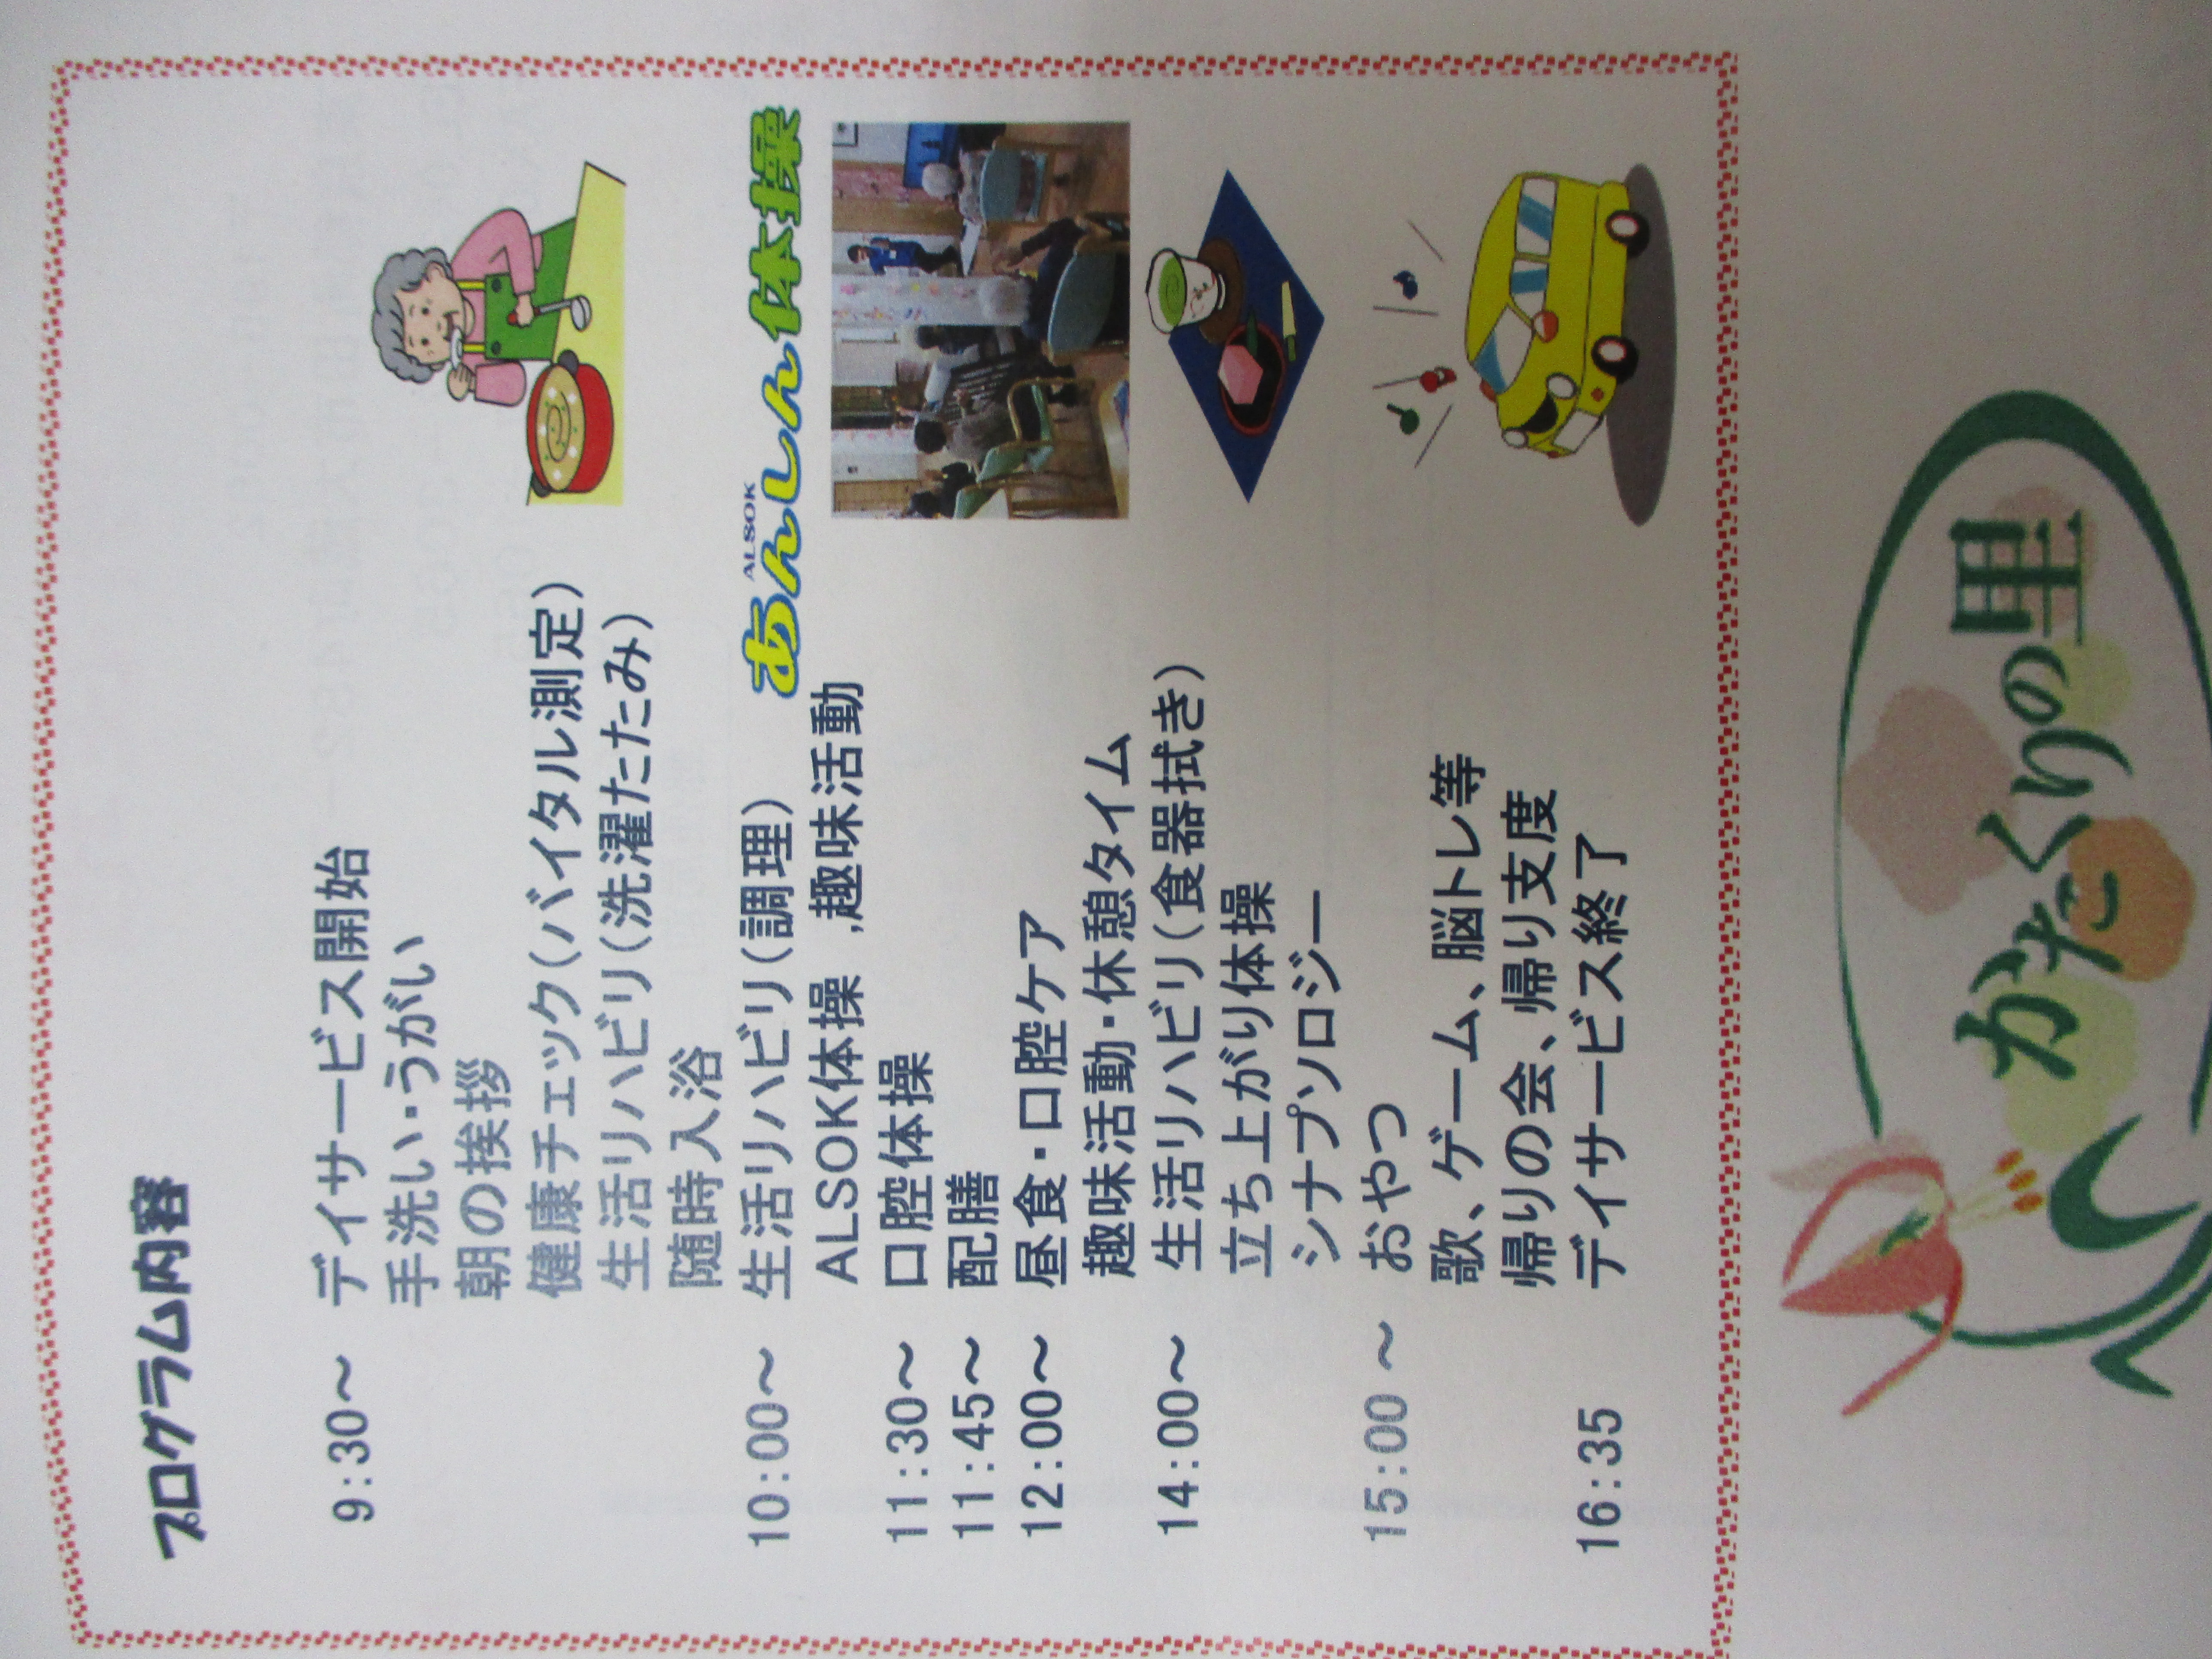 プログラム内容
9:30～ デイサービス開始
手洗い・うがい
朝の挨拶
健康チェック(バイタル測定)
生活リハビリ(洗濯たたみ)
随時入浴
10:00～ 生活リハビリ(調理)
ALSOK
あんしん体操
ALSOK体操 ,趣味活動
11:30～ 口腔体操
11:45～ 配膳
12:00～ 昼食・口腔ケア
趣味活動・休憩タイム
14:00～ 生活リハビリ(食器拭き)
立ち上がり体操
シナプソロジー
15:00 ～ おやつ
歌、ゲーム、脳トレ等
帰りの会、帰り支度
16:35 デイサービス終了
かたくりの里